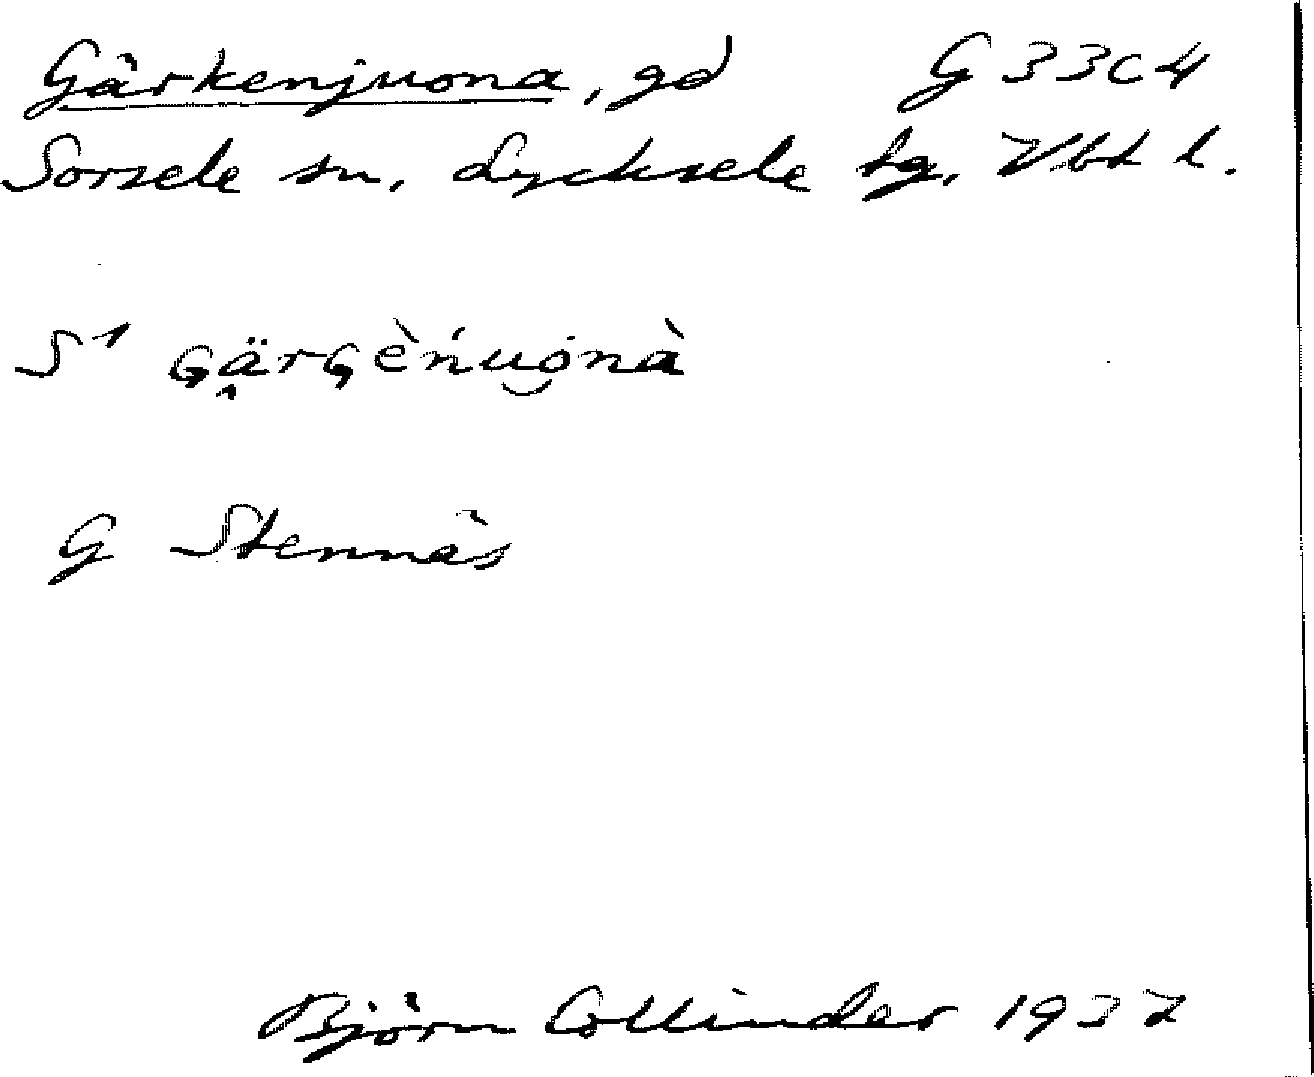 Gärkenjuona, gd G 33 C 4
Sorsele sn, Lycksele tg, Vbt l.
S¹ GärGèńuonà
G Stennäs
Björn Collinder 1937